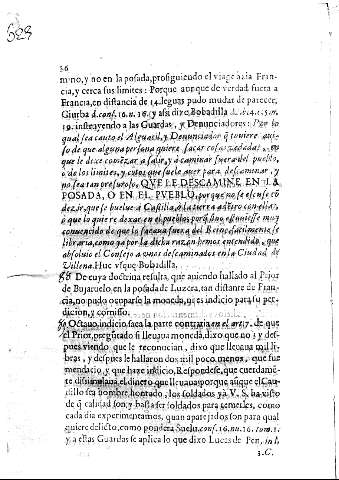 36
mino, y no en la posada, prosiguiendo el viage hazia Fran-
cia, y cerca sus limites: Porque aunque de verdad fuera a
Francia, en distancia de 14. leguas pudo mudar de parecer,
Giurba d. conf. 16. n. 16. y assi dize Bobadilla d. c. 4. 5. n.
19. instruyendo a las Guardas, y Denunciadores: Por lo
qual sea cauto el Alguazil, y Denunciador q̃ tuviere aui-
so de que alguna persona quiere sacar cosas vedadas,
que le dexe començar a salir, y à caminar fuera del pueblo,
o de los limites, y cutos que suele auer para descaminar, y
no sea tan presuroso, QVE LE DESCAMINE EN LA
POSADA, O EN EL PVEBLO, porque no se escuse cõ
dezir, que se buelue a Castilla, à la tierra adentro con ellas,
ò que lo quiere dexar en el pueblo,
conuencido de que lo sacaua fuera del Reyno facilmente se
libraria, como ya por la dicha razon hemos entendido, que
absoluio el Consejo a vnos descaminados en la Ciudad de
Villena. Huc vsque Bobadilla.
De cuya doctrina resulta, que auiendo hallado al Prior
de Bujaruelo, en la posada de Luzera, tan distante de Fran-
cia, no pudo ocuparse la moneda, ni es indicio para su per-
dicion, y comisso.
Octauo, indicio saca la parte contraria en el art. 7. de que
el Prior, preguntado si lleuaua moneda, dixo que no: y des-
pues viendo que le reconocian, dixo que lleuaua mil li-
bras, y despues le hallaron dos mil poco menos, que fue
mendacio, y que haze indicio, Respondese, que cuerdamẽ-
te dissimulaua el dinero que lleuaua: porque aũque el Cau-
dillo sea hombre honrado, los soldados ya V. S. ha visto
de q̃ calidad son, y basta ser soldados para temerles, como
cada dia experimentamos, quan aparejados son para qual
quiere delicto, como pondera Suelu. conf. 16. nu. 16. tom. 1.
y a estas Guardas se aplica lo que dixo Lucas de Pen, in l.
3. C.